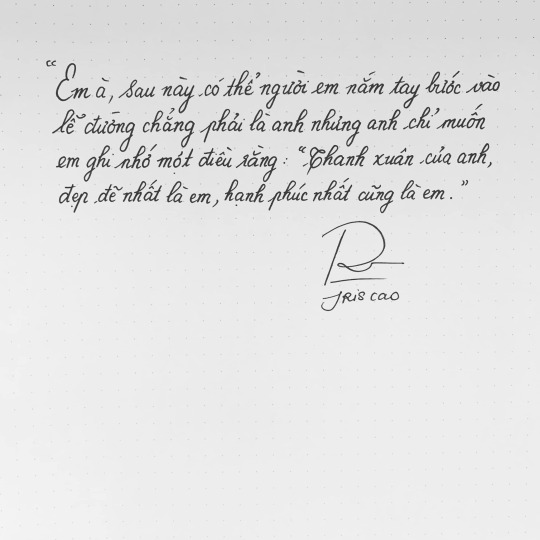 “Em à, sau này có thể người em nắm tay bước vào
lễ đường chẳng phải là anh nhưng anh chỉ muốn
em ghi nhớ một điều rằng: “Thanh xuân của anh,
đẹp đẽ nhất là em, hạnh phúc nhất cũng là em.”
IRIS CAO